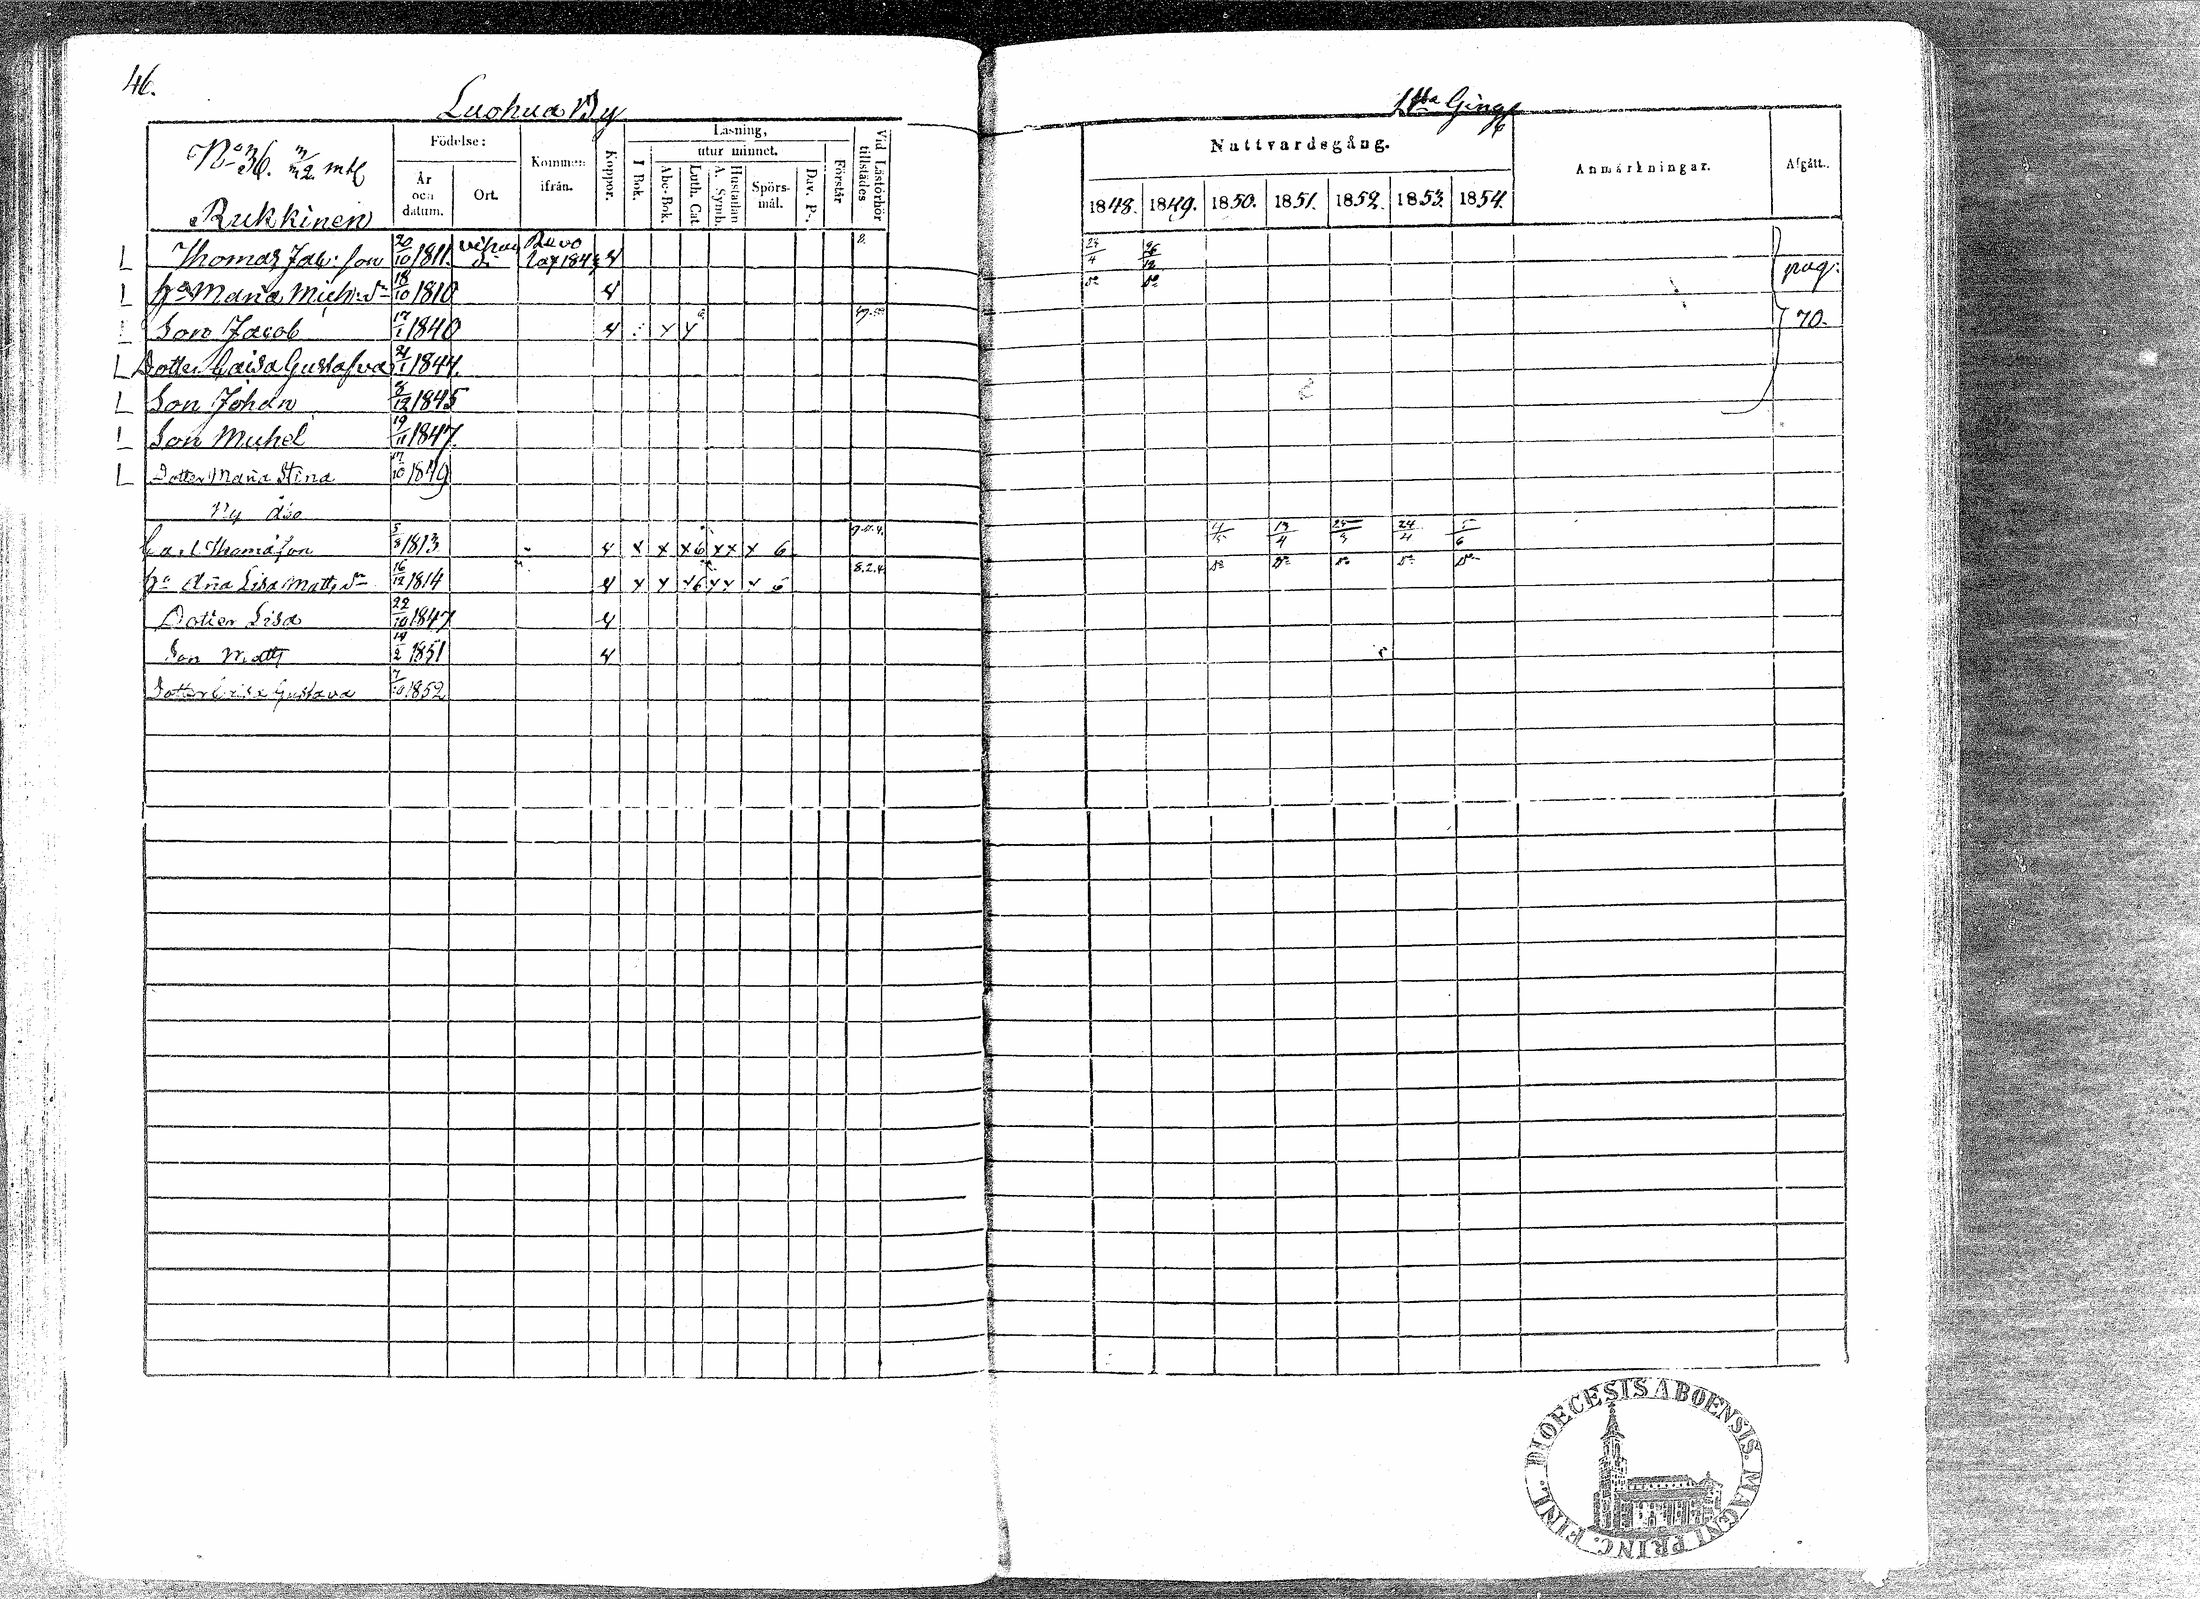 46.
Luohua By
No 36. 3/12 mtl
Rukkinen
Födelse:
År och datum.
Ort.
Kommen ifrån.
Koppor.
Läsning,
utur minnet.
I Bok.
Abc-Bok.
Luth. Cat
Hustaflan A. Symb.
Spörs-mål.
Dav. Ps.
Förstår
Vid Läsförhör tillstädes
Thomas Jac: son 20/10 1811.
hu Maria Mich: dr 18/10 1810
Son Jacob 17/1 1840
Dotter Caisa Gustafva 21/1 1844.
Son Johan 8/12 1845
Son Michel 19/11 1847.
Dotter Maria Stina 17/10 1849
Ny Åbo
Carl Thomasson 5/8 1813 x x x 6 x x x 6
hu Aña Lisa Matts dr 16/12 1814 x x x 6 x x x 6 8.2.4.
Dotter Lisa 22/10 1847
Son Matts 14/2 1851
Dotter Caisa Gustava 7/10 1852
Nattvardsgång.
1848. 1849. 1850. 1851. 1852. 1853. 1854.
Anmärkningar.
Afgått.
pag:
70.
13/4 24/4 5/6
DIOECESIS ABOENSIS. MAGNI PRINC. FINL.